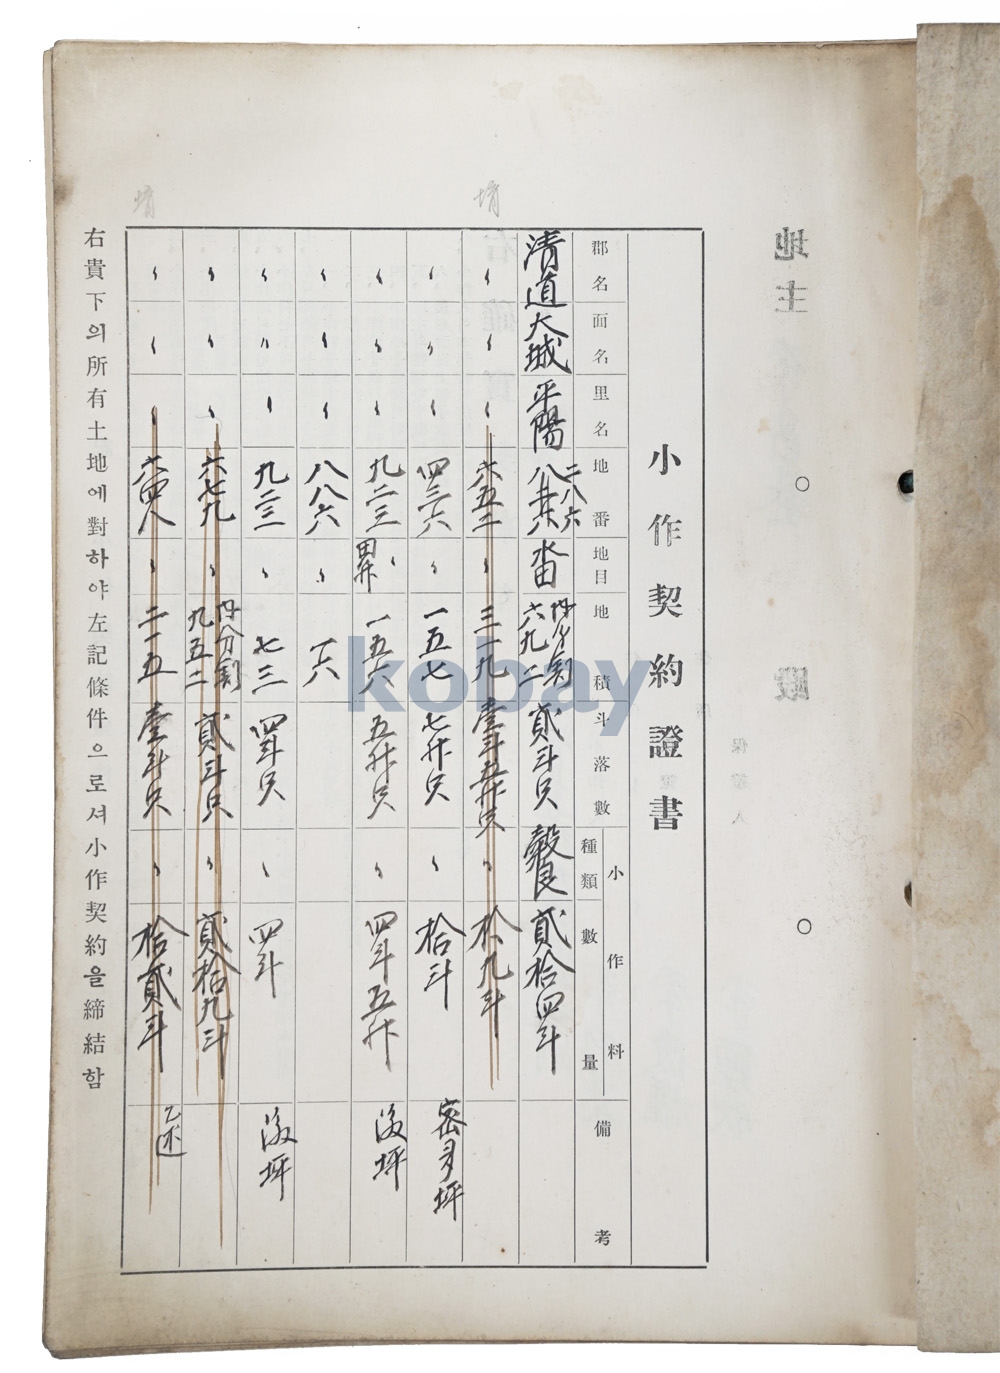 小作契約證書
郡名 面名 里名 地番 地目 地積 斗落數 小作料 種類 數量 備考
淸道 大城 平陽 二八六 八共六 畓 內分割 六九二 貳斗只 穀良 貳拾四斗
〃 〃 〃 六五二 〃 三一九 壹斗五升只 〃 拾九斗
〃 〃 〃 四三六 〃 一五七 七升只 〃 拾斗
〃 〃 〃 九二三 〃 一五六 五升只 〃 四斗五升
〃 〃 〃 八八六 〃 一六
〃 〃 〃 九三三 〃 七三 四斗只 〃 四斗
〃 〃 〃 六七九 〃 內分割 九五二 貳斗只 〃 貳拾九斗
〃 〃 〃 六四八 〃 二一五 壹斗只 〃 拾貳斗
右貴下의所有土地에對하야左記條件으로셔小作契約을締結함
地主
殿
保證人
kobay